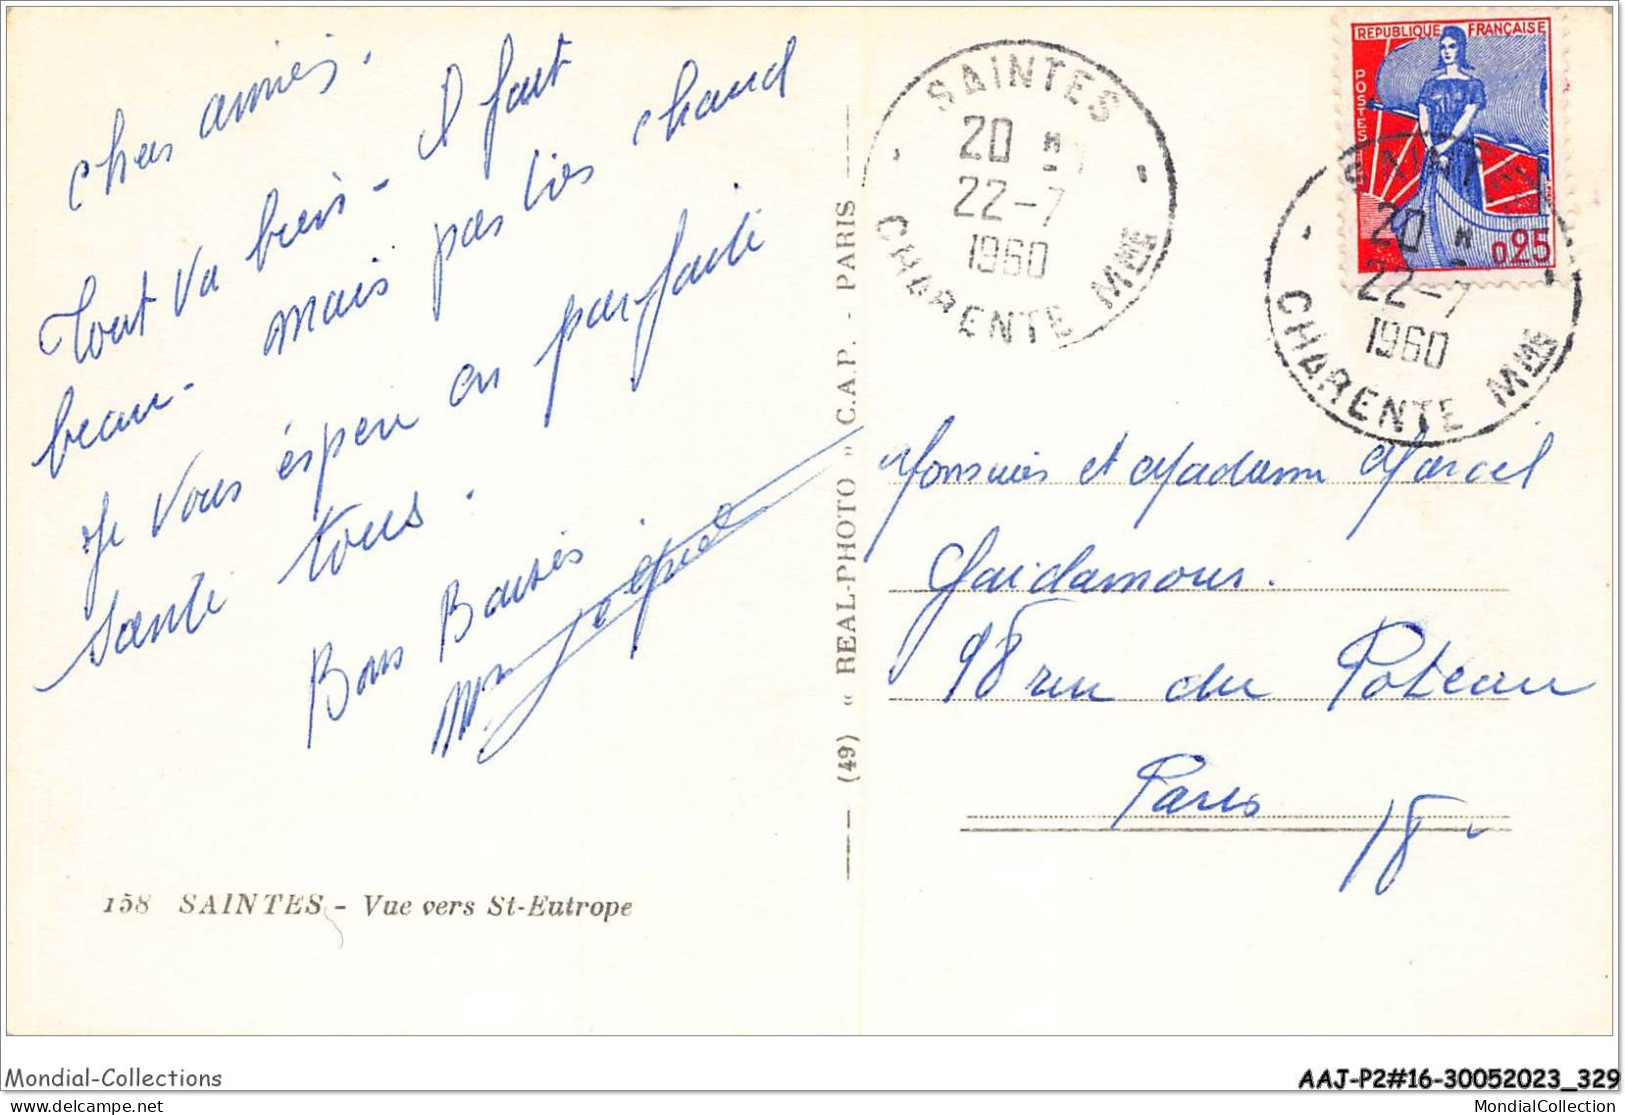 chers amies.
Tout va bien - il fait
beau - mais pas très chaud
Je vous éspère en parfaite
santé tous.
Bons Baisés
(49) « REAL-PHOTO » C.A.P. - PARIS
158 SAINTES - Vue vers St-Eutrope
SAINTES
20 H
22-7
1960
CHARENTE MME
REPUBLIQUE FRANÇAISE
POSTES
0,25
SAINTES
20 H
22-7
1960
CHARENTE MME
Monsuies et Madame Marcel
Gaidamour.
98 rue du Poteau
Paris 18
Mondial-Collections
AAJ-P2#16-30052023_329
www.delcampe.net
MondialCollection